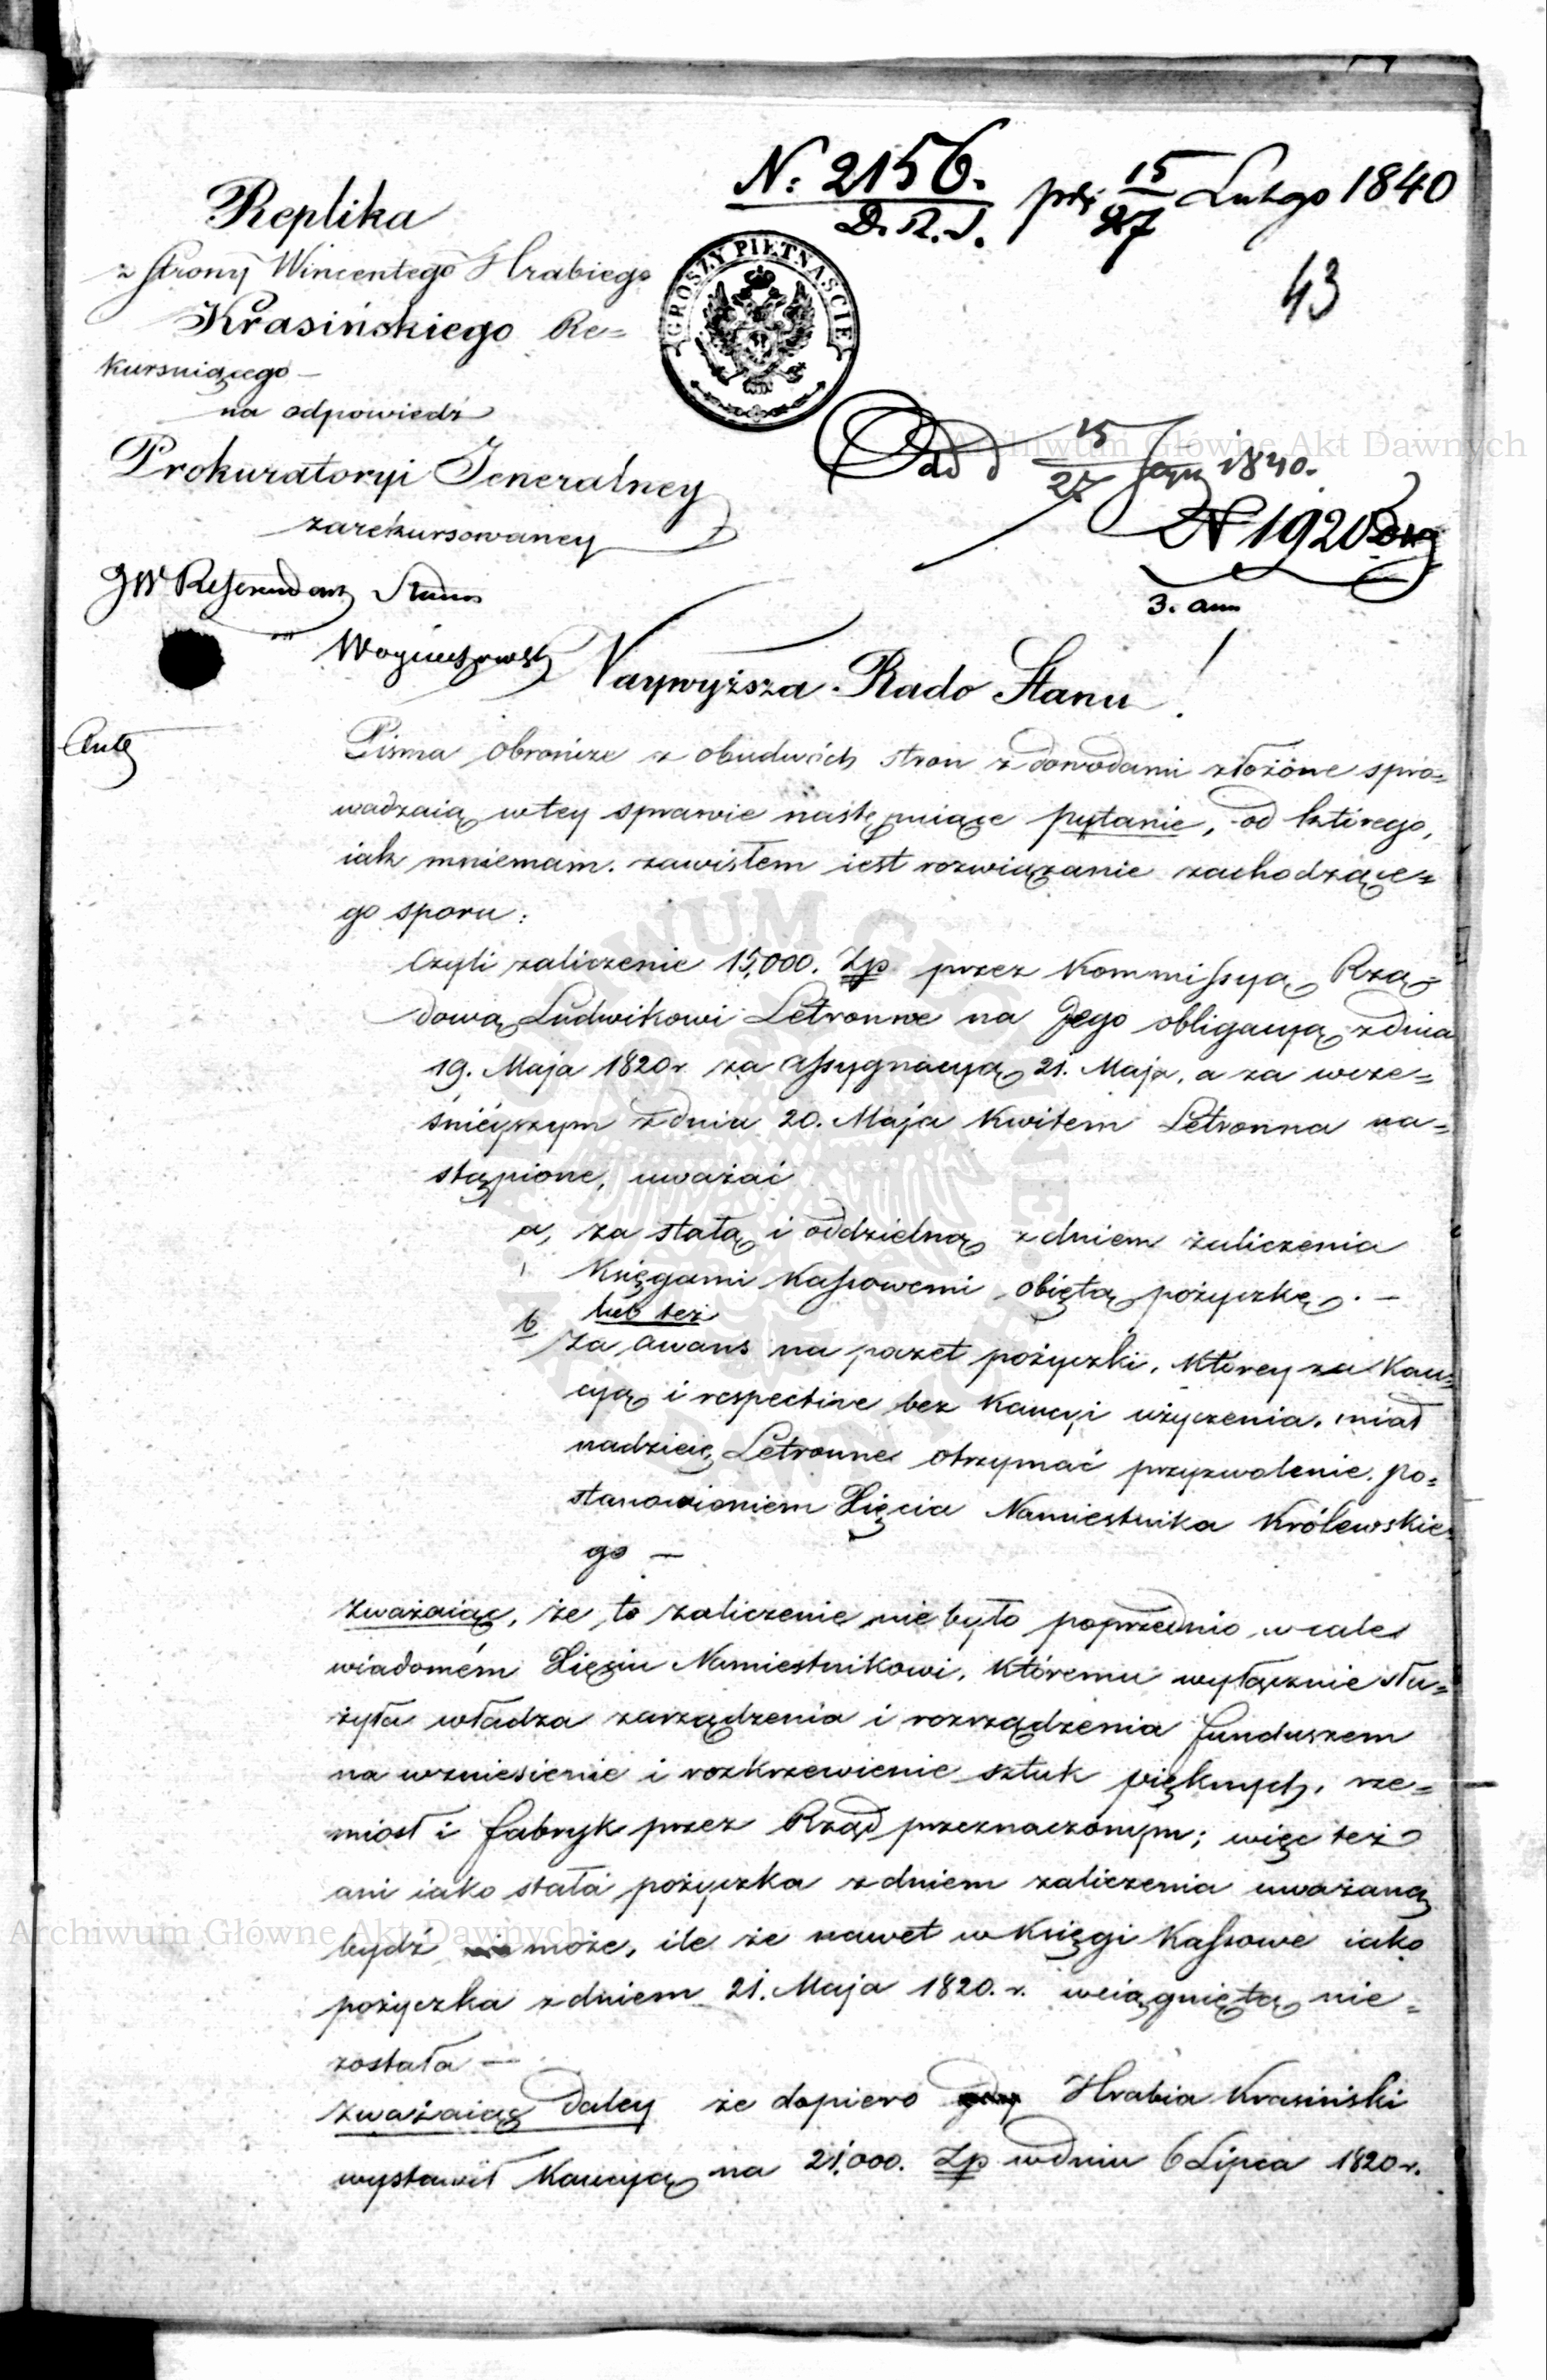 N. 2156.
D.R.S.
15/27 Lutego 1840
43
Replika
z strony Wincentego Hrabiego
Krasińskiego Re=
kursuiącego —
na odpowiedź
Prokuratoryi Jeneralney
zarekursowaney
GROSZY PIĘTNAŚCIE
15/27 1840.
N 1920
3.
JW Referendarz Stanu
Naywyższa Rado Stanu!
Pisma obrończe z obudwóch stron z dowodami złożone spro=
wadzaią w tey sprawie następuiące pytanie, od którego,
iak mniemam, zawisłem iest rozwiązanie zachodzące=
go sporu:
Czyli zaliczenie 15,000. Zp przez Kommissyą Rzą=
dową Ludwikowi Letronne na Jego obligacyą z dnia
19. Maja 1820 r. za assygnacyą 21. Maja, a za wcze=
śnieyszym z dnia 20. Maja Kwitem Letronna na=
stąpione, uważać
a, za stałą i oddzielną z dniem zaliczenia
Księgami Kassowemi obiętą pożyczkę. —
lub też
b za awans na poczet pożyczki, którey za Kau=
cyą i respective bez Kaucyi użyczenia, miał
nadzieię Letronne otrzymać przyzwolenie po=
stanowieniem Xięcia Namiestnika Królewskie=
go —
Zważaiąc, że to zaliczenie nie było poprzednio wcale
wiadomém Xięciu Namiestnikowi, któremu wyłącznie słu=
żyła władza zarządzenia i rozrządzenia funduszem
na wzniesienie i rozkrzewienie sztuk pięknych, rze=
miosł i fabryk przez Rząd przeznaczonym; więc też
ani iako stała pożyczka z dniem zaliczenia uważaną
bydź może, ile że nawet w Księgi Kassowe iako
pożyczka z dniem 21. Maja 1820. r. wciągniętą nie=
została —
Zważaiąc daley że dopiero Hrabia Krasiński
wystawił Kaucyą na 21,000. Zp w dniu 6 Lipca 1820 r.
Archiwum Główne Akt Dawnych
Archiwum Główne Akt Dawnych